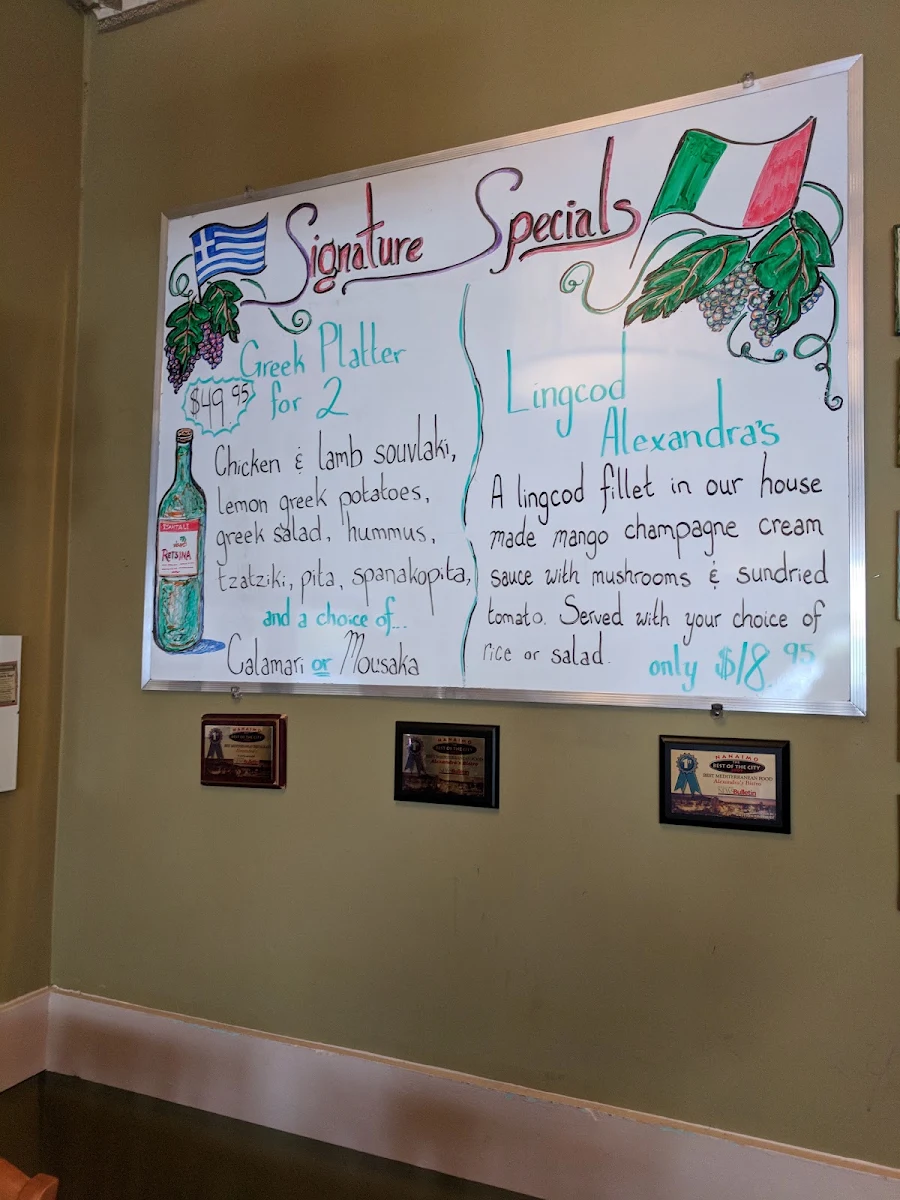 Signature Specials
Greek Platter
for 2
$49.95
Chicken & lamb souvlaki,
lemon greek potatoes,
greek salad, hummus,
tzatziki, pita, spanakopita,
and a choice of...
Calamari or Mousaka
RETSINA
Lingcod
Alexandra's
A lingcod fillet in our house
made mango champagne cream
sauce with mushrooms & sundried
tomato. Served with your choice of
rice or salad.
only $18.95
BEST OF THE CITY
NANAIMO
BEST OF THE CITY
NANAIMO
BEST OF THE CITY
BEST MEDITERRANEAN FOOD
Alexandra's Bistro
Bulletin